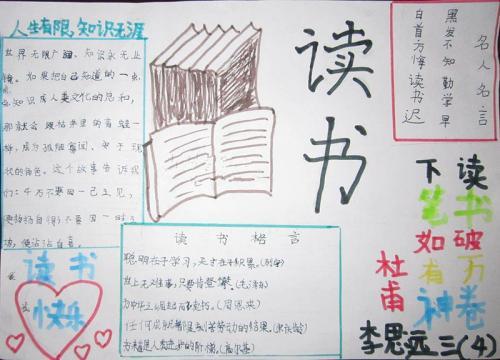 人生有限,知识无涯
世界无限广阔,知识永无止
境。如果把自己知道的一点
知识当人类文化的总和,
那就会
这个故事告诉
我们:千万不要因一己之见,
便沾沾自喜。
读书
快乐
读书
名人名言
黑发不知勤学早
白首方悔读书迟
读书破万卷
下笔如有神
杜甫
李思远 三(4)
读书格言
聪明在于学习,天才在于积累。(列宁)
世上无难事,只要肯登攀。(毛泽东)
为中华之崛起而读书。(周恩来)
任何成就都是刻苦劳动的结果。(宋庆龄)
书籍是人类进步的阶梯。(高尔基)